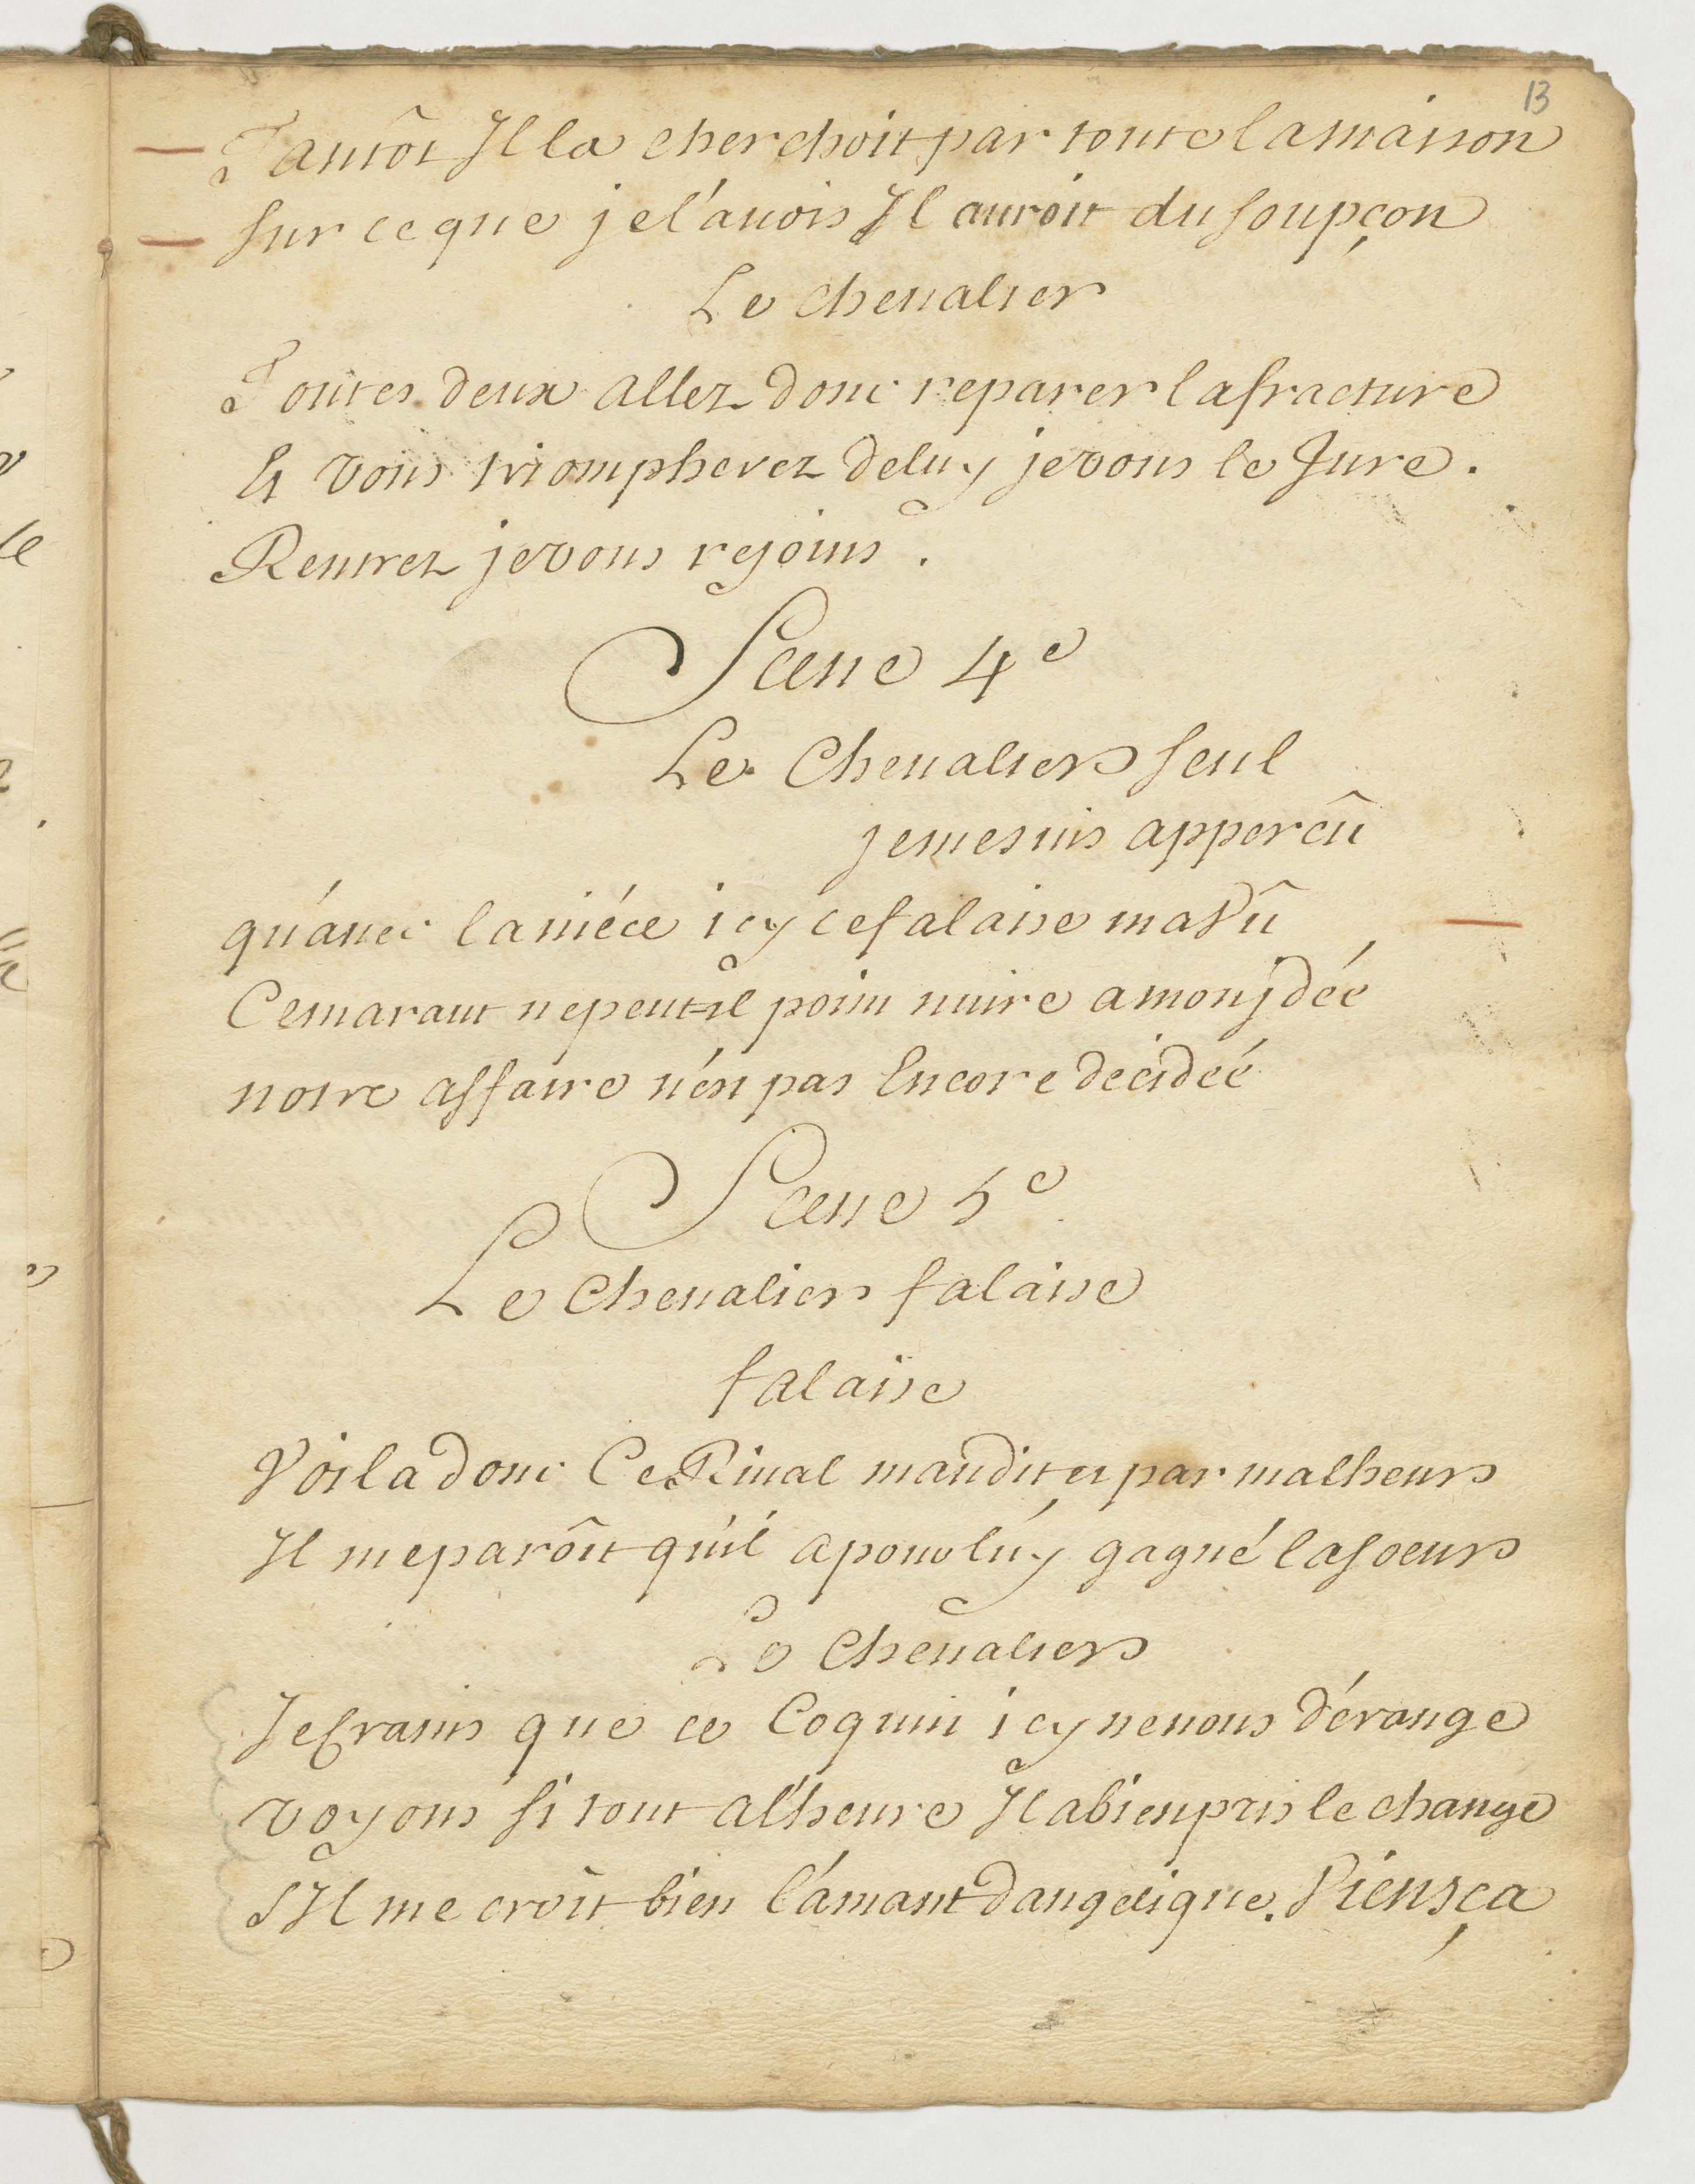 13
Tantôt Il la cherchoit par toute la maison
sur ce que je l'auois Il auroit du soupçon
Le cheualier
Toutes deux allez donc reparer la fracture
Et vous triompherez de luy je vous le Jure.
Rentrez je vous rejoins.
Scene 4e
Le Cheualier seul
je me suis apperçû
qu'auec la niéce icy ce falaise ma Vû
Ce maraut ne peut-il point nuire a mon jdée
notre affaire n'ést pas Encore décidée
Scene 5e
Le Cheualier falaise
falaise
Voila donc Ce Rival maudit et par malheur
Il me parôit qu'il a pour luy gagné la soeur
Le Cheualier
Je Crains que ce Coquin icy ne nous dérange
voyons si tout al'heure Il a bien pris le change
S'Il me croit bien l'amant dangelique. Viens ça